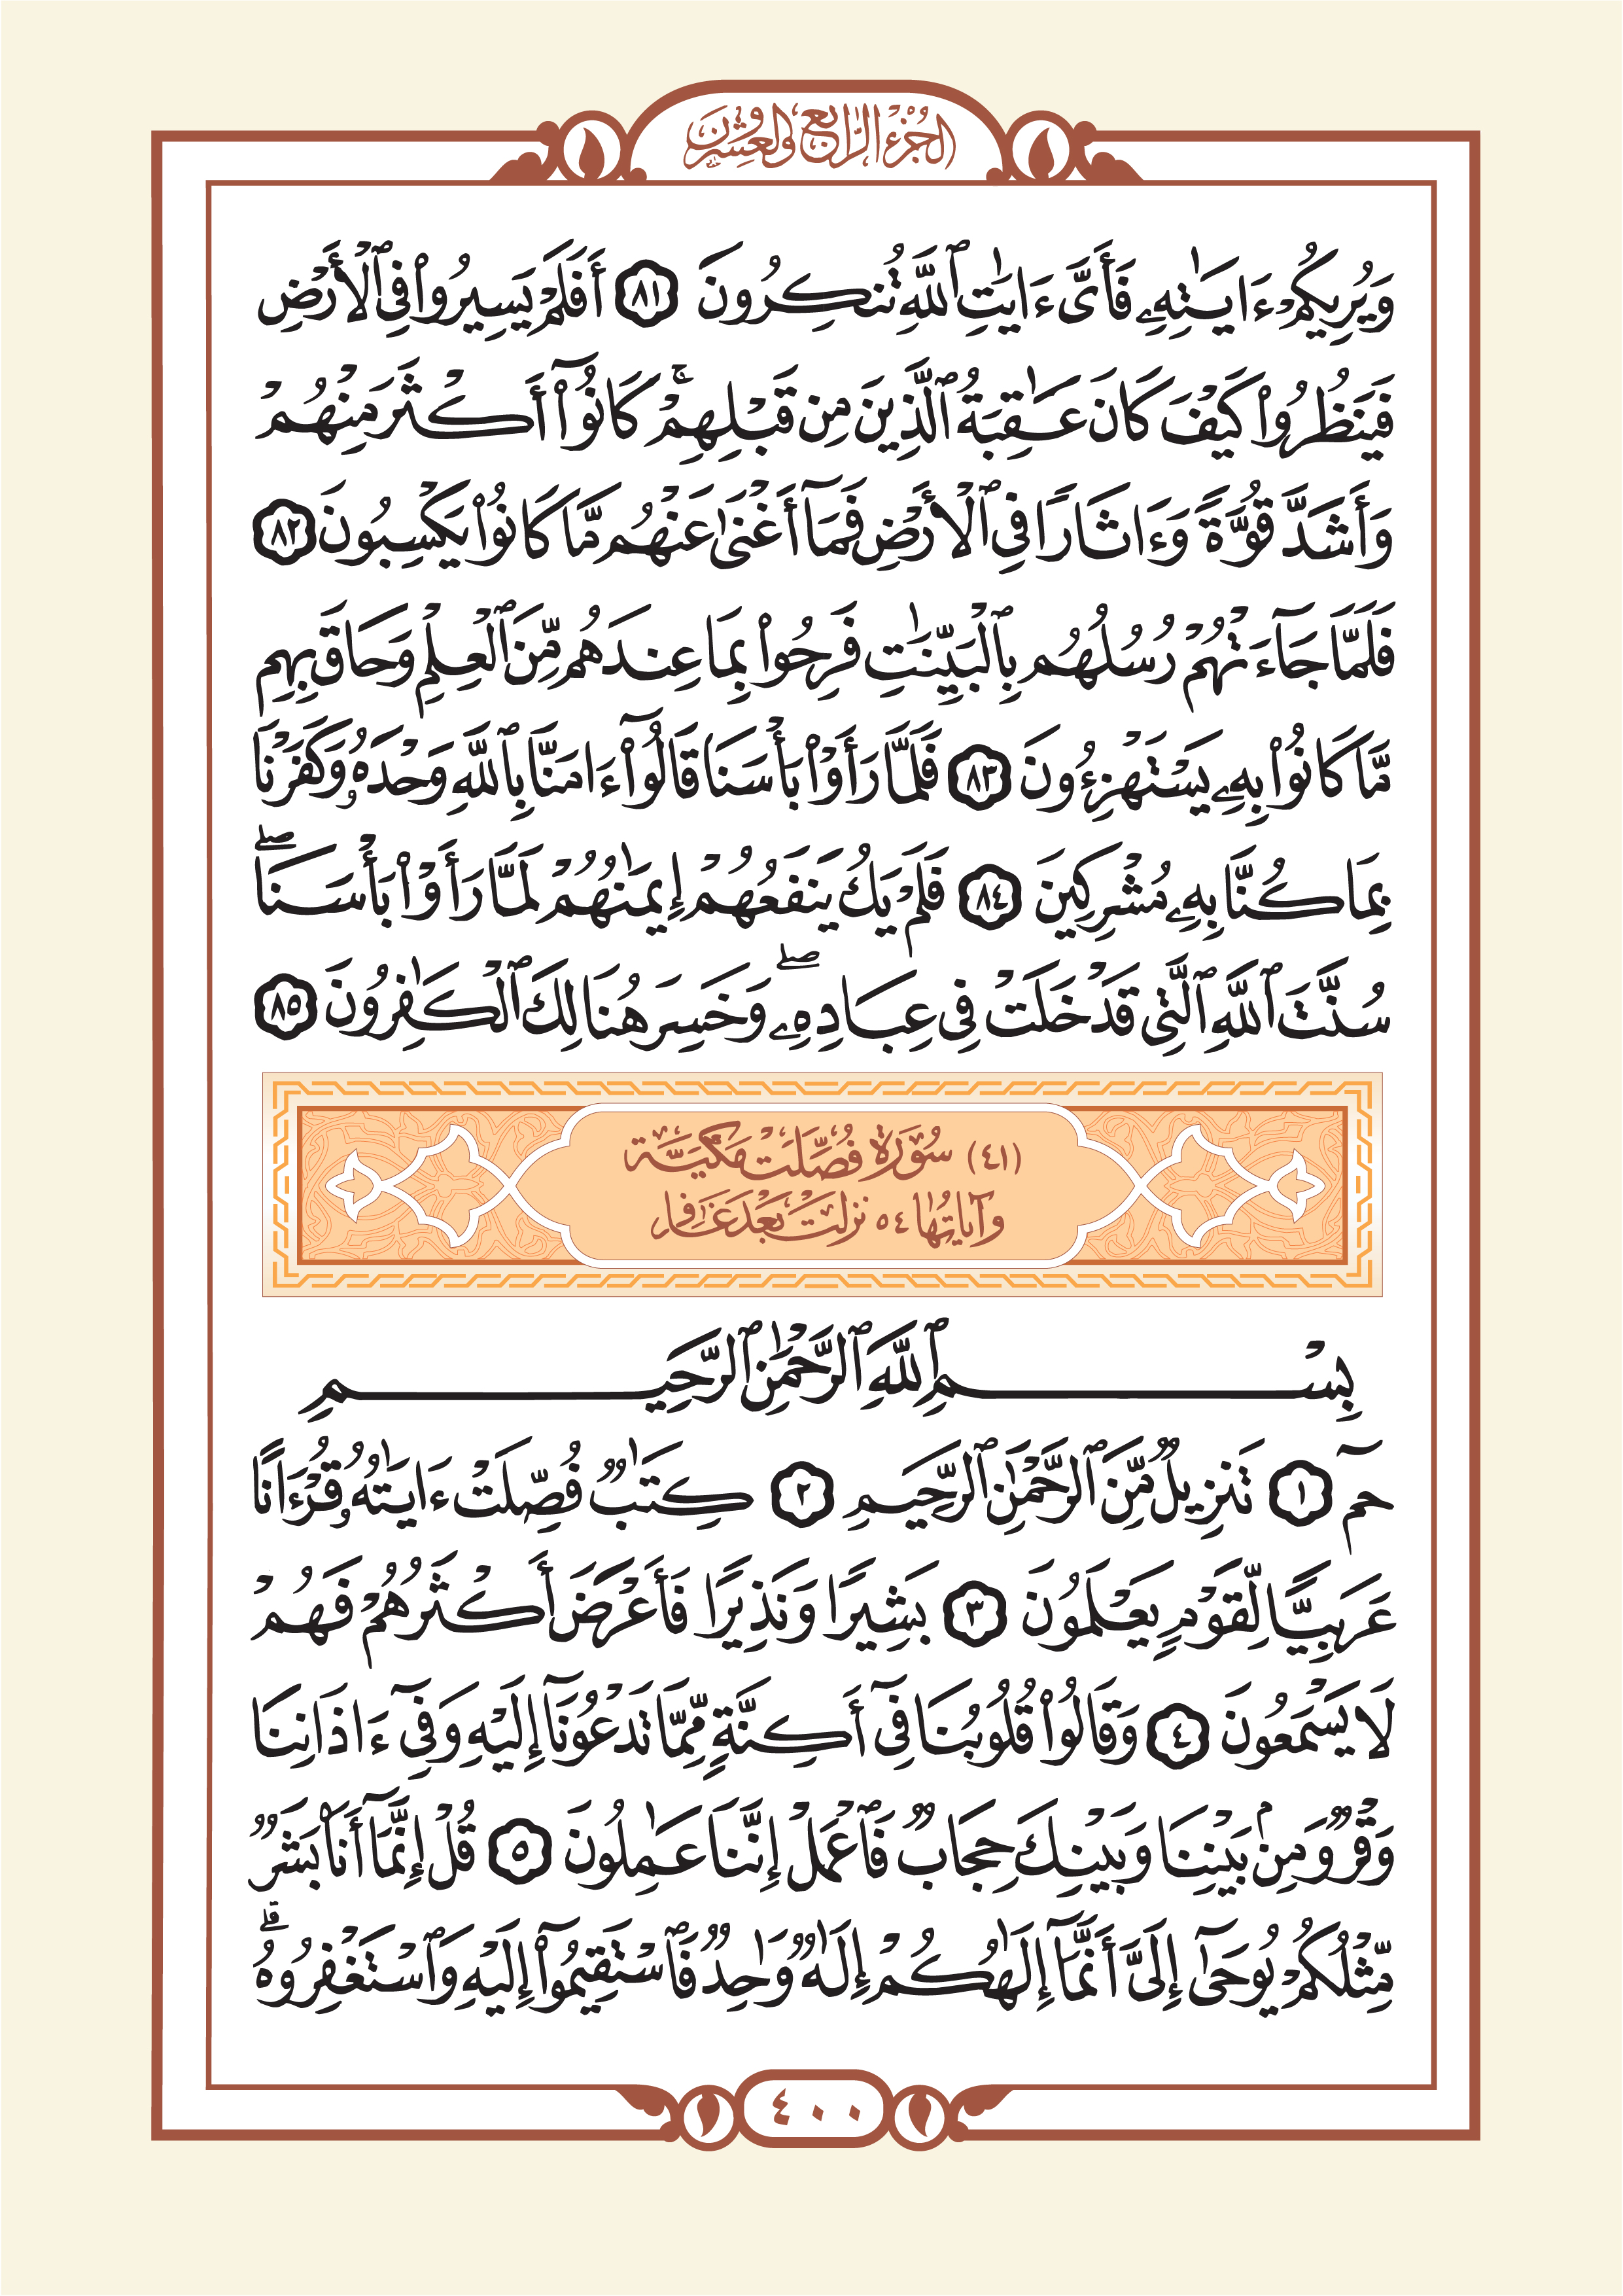 الجُزْءُ الرَّابِعُ وَالعِشْرُونَ
وَيُرِيكُمْ ءَايَٰتِهِۦ فَأَىَّ ءَايَٰتِ ٱللَّهِ تُنكِرُونَ ٨١ أَفَلَمْ يَسِيرُوا۟ فِى ٱلْأَرْضِ
فَيَنظُرُوا۟ كَيْفَ كَانَ عَٰقِبَةُ ٱلَّذِينَ مِن قَبْلِهِمْ ۚ كَانُوٓا۟ أَكْثَرَ مِنْهُمْ
وَأَشَدَّ قُوَّةً وَءَاثَارًا فِى ٱلْأَرْضِ فَمَآ أَغْنَىٰ عَنْهُم مَّا كَانُوا۟ يَكْسِبُونَ ٨٢
فَلَمَّا جَآءَتْهُمْ رُسُلُهُم بِٱلْبَيِّنَٰتِ فَرِحُوا۟ بِمَا عِندَهُم مِّنَ ٱلْعِلْمِ وَحَاقَ بِهِم
مَّا كَانُوا۟ بِهِۦ يَسْتَهْزِءُونَ ٨٣ فَلَمَّا رَأَوْا۟ بَأْسَنَا قَالُوٓا۟ ءَامَنَّا بِٱللَّهِ وَحْدَهُۥ وَكَفَرْنَا
بِمَا كُنَّا بِهِۦ مُشْرِكِينَ ٨٤ فَلَمْ يَكُ يَنفَعُهُمْ إِيمَٰنُهُمْ لَمَّا رَأَوْا۟ بَأْسَنَا ۖ
سُنَّتَ ٱللَّهِ ٱلَّتِى قَدْ خَلَتْ فِى عِبَادِهِۦ ۖ وَخَسِرَ هُنَالِكَ ٱلْكَٰفِرُونَ ٨٥
(٤١) سُورَةُ فُصِّلَتْ مَكِّيَّة
وَآيَاتُهَا ٥٤ نَزَلَتْ بَعْدَ غَافِر
بِسْمِ ٱللَّهِ ٱلرَّحْمَٰنِ ٱلرَّحِيمِ
حمٓ ١ تَنزِيلٌ مِّنَ ٱلرَّحْمَٰنِ ٱلرَّحِيمِ ٢ كِتَٰبٌ فُصِّلَتْ ءَايَٰتُهُۥ قُرْءَانًا
عَرَبِيًّا لِّقَوْمٍ يَعْلَمُونَ ٣ بَشِيرًا وَنَذِيرًا فَأَعْرَضَ أَكْثَرُهُمْ فَهُمْ
لَا يَسْمَعُونَ ٤ وَقَالُوا۟ قُلُوبُنَا فِىٓ أَكِنَّةٍ مِّمَّا تَدْعُونَآ إِلَيْهِ وَفِىٓ ءَاذَانِنَا
وَقْرٌ وَمِنۢ بَيْنِنَا وَبَيْنِكَ حِجَابٌ فَٱعْمَلْ إِنَّنَا عَٰمِلُونَ ٥ قُلْ إِنَّمَآ أَنَا۠ بَشَرٌ
مِّثْلُكُمْ يُوحَىٰٓ إِلَىَّ أَنَّمَآ إِلَٰهُكُمْ إِلَٰهٌ وَٰحِدٌ فَٱسْتَقِيمُوٓا۟ إِلَيْهِ وَٱسْتَغْفِرُوهُ ۗ
٤٠٠